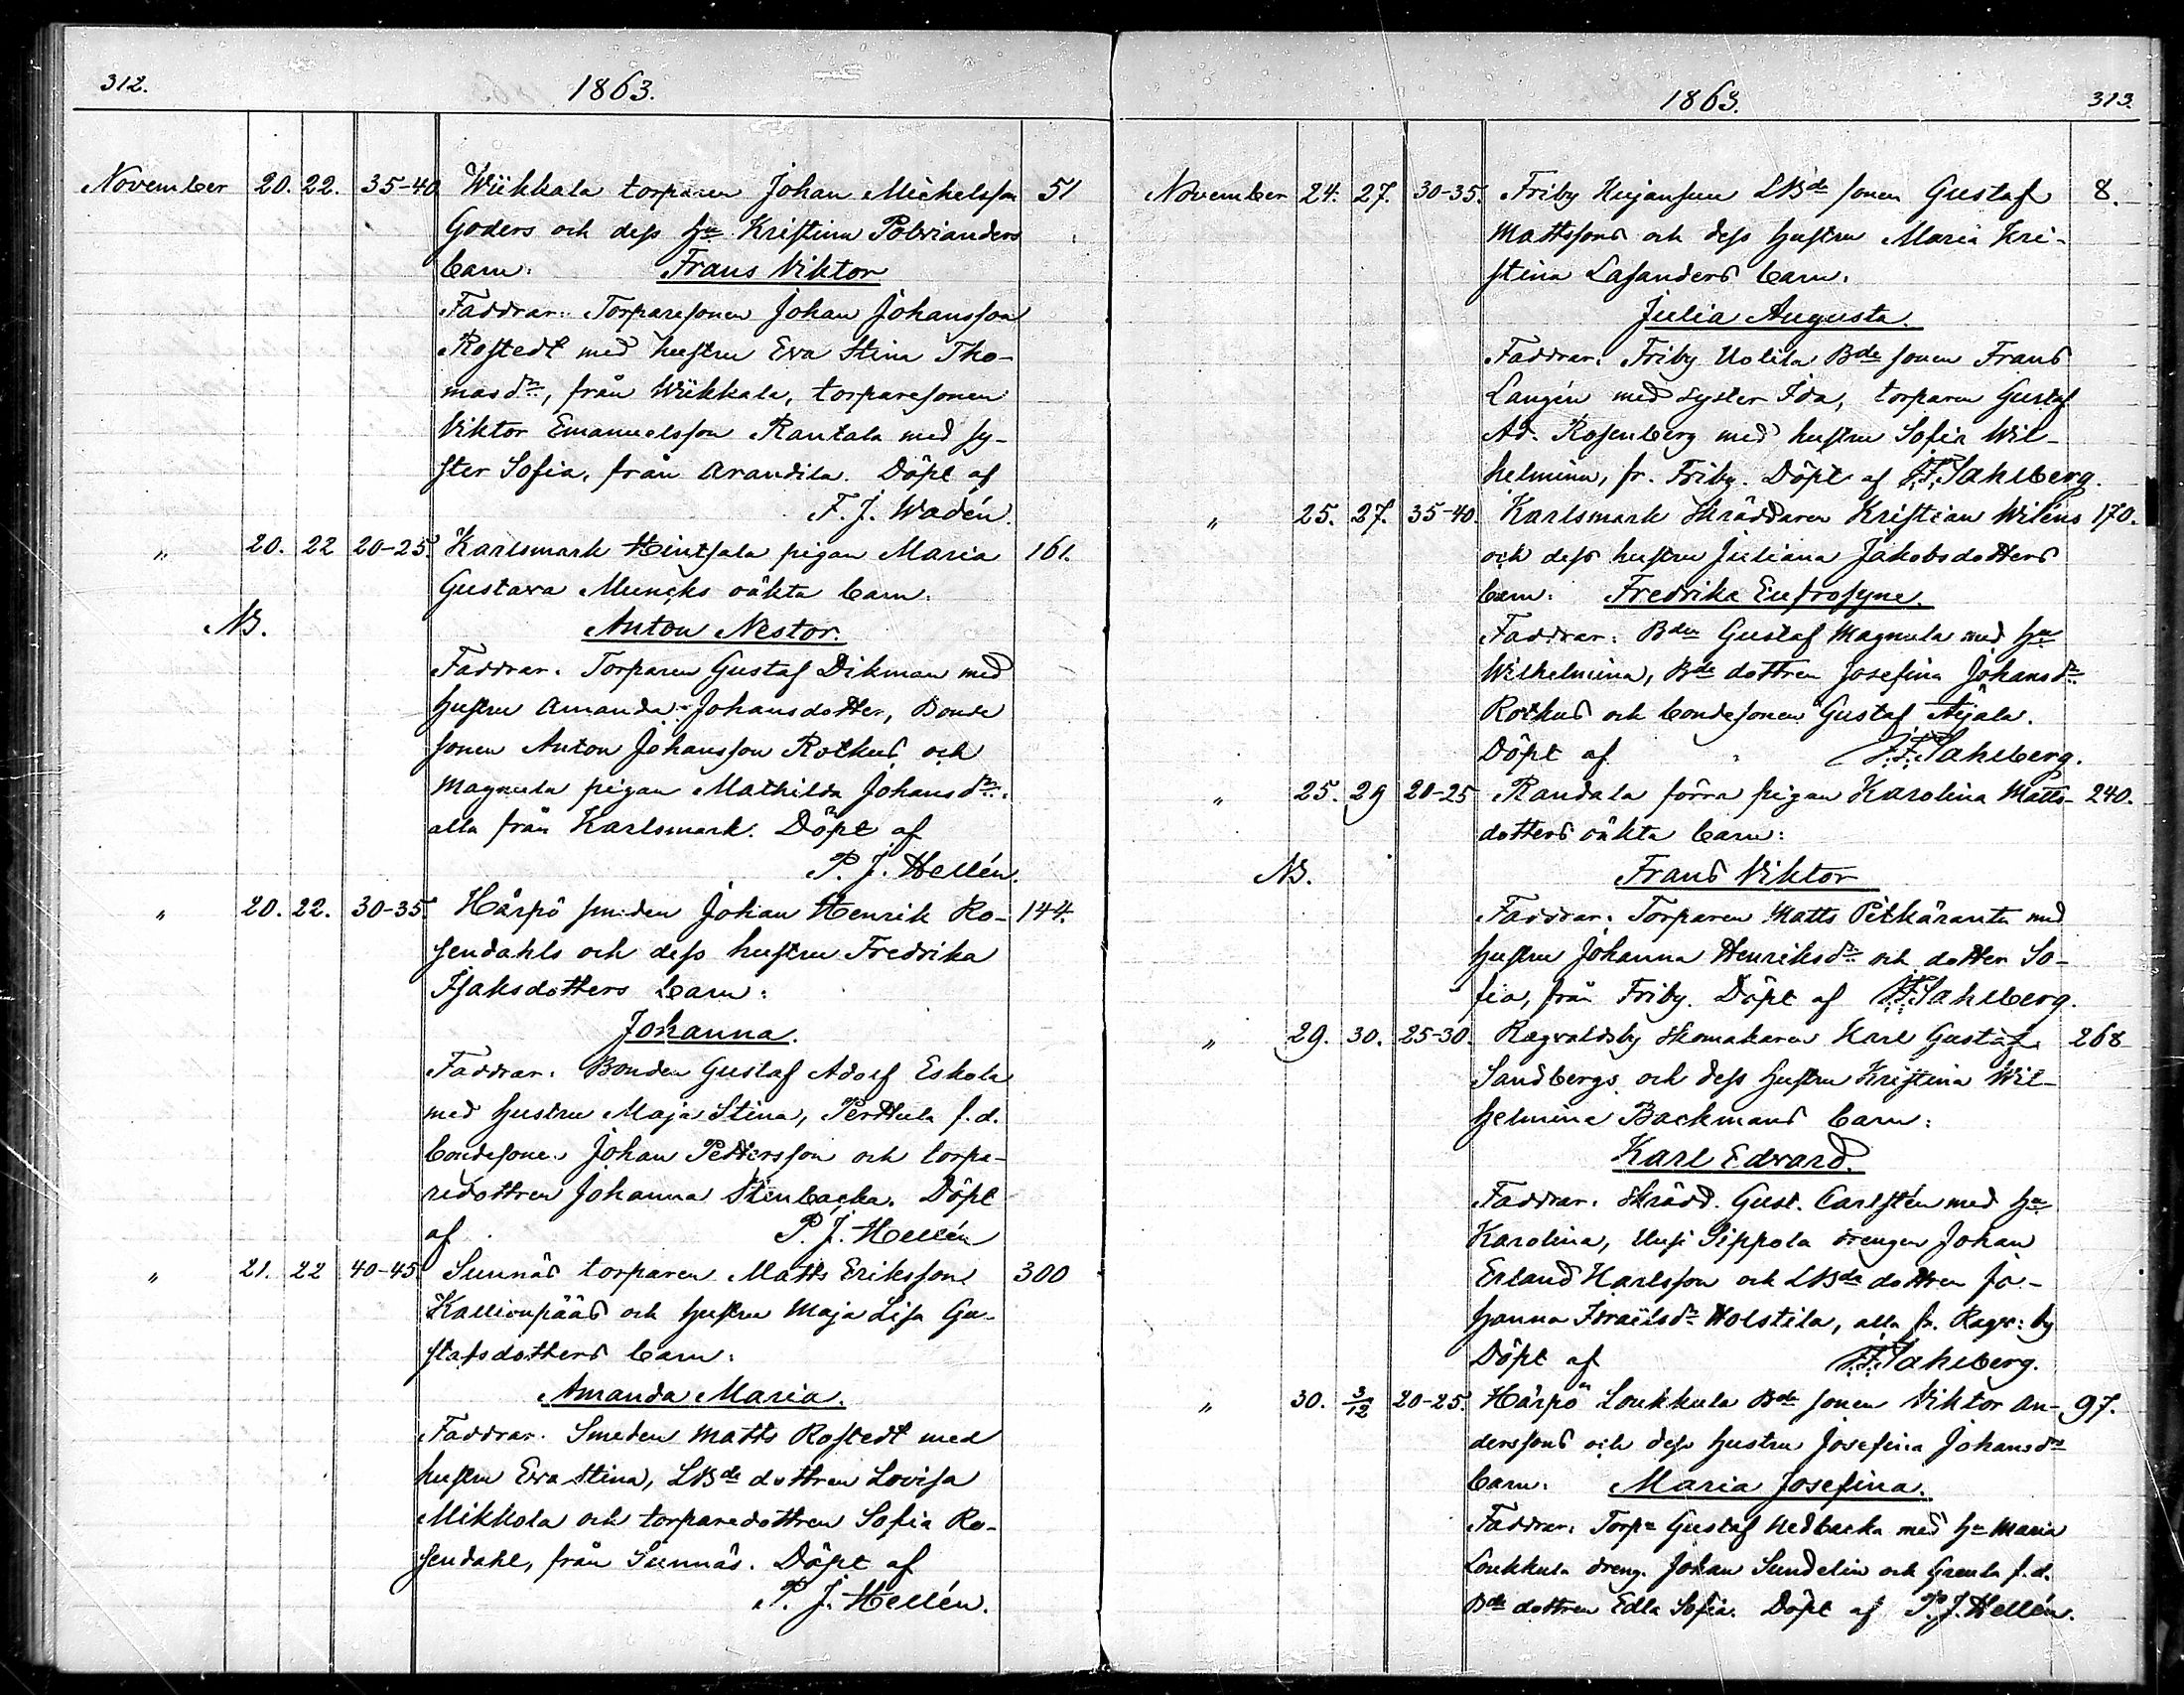 312.
1863.
November 20. 22. 35-40 Wiikkala torparen Johan Michelsson 51
Goders och dess Hu Kristina Polvianders
barn: Frans Viktor
Faddrar: Torparesonen Johan Johansson
Rostedt med hustru Eva Stina Tho-
masdr, från Wiikkala, torparesonen
Viktor Emanuelsson Rantala med sy-
ster Sofia, från Arandila. Döpt af
F. J. Wadén.
" 20. 22 20-25. Karlsmark Heintsala pigan Maria 161.
Gustava Muncks oäkta barn:
NB. Anton Nestor.
Faddrar: Torparen Gustaf Dikman med
hustru Amanda Johansdotter, Bonde
sonen Anton Johansson Rotkus och
Magnula pigan Mathilda Johansdr.
alla från Karlsmark. Döpt af
P. J. Hellén.
" 20. 22. 30-35. Hårpö smeden Johan Henrik Ro- 144.
sendahls och dess hustru Fredrika
Isaksdotters barn:
Johanna.
Faddrar: Bonden Gustaf Adolf Eskola
med hustru Maja Stina, Perttula f.d.
bondesonen Johan Pettersson och torpa-
redottren Johanna Stenbacka. Döpt
af P. J. Hellén
" 21. 22 40-45. Sunnäs torparen Matts Eriksson 300
Kallionpääs och hustru Maja Lisa Gu-
stafsdotters barn:
Amanda Maria.
Faddrar: Smeden Matts Rostedt med
hustru Eva Stina, LBde dottren Lovisa
Mikkola och torparedottren Sofia Ro-
sendahl, från Sunnäs. Döpt af
P. J. Hellén.
1863.
313.
November 24. 27. 30-35. Friby Kujansuu LBde sonen Gustaf 8.
Mattssons och dess hustru Maria Kri-
stina Lasanders barn:
Julia Augusta.
Faddrar: Friby Uolila Bde sonen Frans
Langén med syster Ida, torparen Gustaf
Ad. Rosenberg med hustru Sofia Wil-
helmina, fr. Friby. Döpt af F.F. Sahlberg.
" 25. 27. 35-40. Karlsmark Skräddaren Kristian Wiléns 170.
och dess hustru Juliana Jakobsdotters
barn: Fredrika Eufrosyne.
Faddrar: Bden Gustaf Magnula med Hu
Wilhelmina, Bde dottren Josefina Johansdr
Rotkus och bondesonen Gustaf Äijälä.
Döpt af F.F. Sahlberg.
" 25. 29 20-25 Randala förra pigan Karolina Matts- 240.
dotters oäkta barn:
NB. Frans Viktor
Faddrar: Torparen Matts Pitkäranta med
hustru Johanna Henriksdr och dotter So-
fia, från Friby. Döpt af F.F. Sahlberg.
" 29. 30. 25-30. Ragvaldsby Skomakaren Karl Gustaf 268
Sandbergs och dess hustru Kristina Wil-
helmina Backmans barn:
Karl Edvard.
Faddrar: Skrädd. Gust. Carlstén med Hu
Karolina, Uusi Sippola drengen Johan
Erland Karlsson och LBde dottren Jo-
hanna Israëlsdr Holstila, alla fr. Ragv:by
Döpt af F.F. Sahlberg.
" 30. 3/12 20-25. Hårpö Loukkula Bde sonen Viktor An- 97.
derssons och dess hustru Josefina Johansdrs
barn: Maria Josefina.
Faddrar: Torpn Gustaf Hedbacka med Hu Maria
Loukkula dreng. Johan Sundelin och Greula f.d.
Bde dottren Edla Sofia. Döpt af P. J. Hellén.